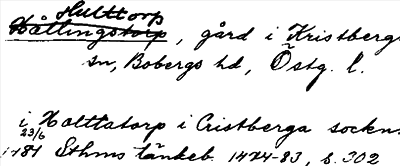 Hulttorp
Hällingstorp, gård i Kristbergs
sn, Bobergs hd, Östg. l.
i Holttatorp i Cristberga sockn
23/6
1481 Sthms tänkeb. 1474-83, s. 302